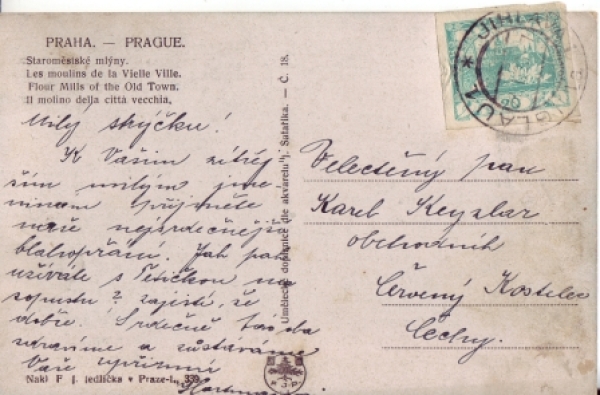 PRAHA. — PRAGUE.
Staroměstské mlýny.
Les moulins de la Vielle Ville.
Flour Mills of the Old Town.
Il molino della città vecchia,
Milý strýčku!
K Vašim zítřej
ším milým jme-
ninám přijměte
naše nejsrdečnější
blahopřání. Jak pak
užíváte s Tetičkou na
? zajisté, že
dobře. Srdečně Vás
zdravíme a zůstáváme
Vaši upřímní
Nakl F. J. Jedlička v Praze-I., 339.
Umělecké dopisnice dle akvarelu J. Šafaříka. — Č. 18.
JIHLAVA
IGLAU 1
20
Velectěný pan
Karel Keyzlar
obchodník
Červený Kostelec
Čechy.